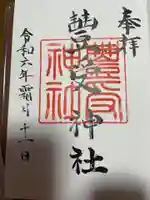 奉拝
豐受神社
令和六年霜月十一日